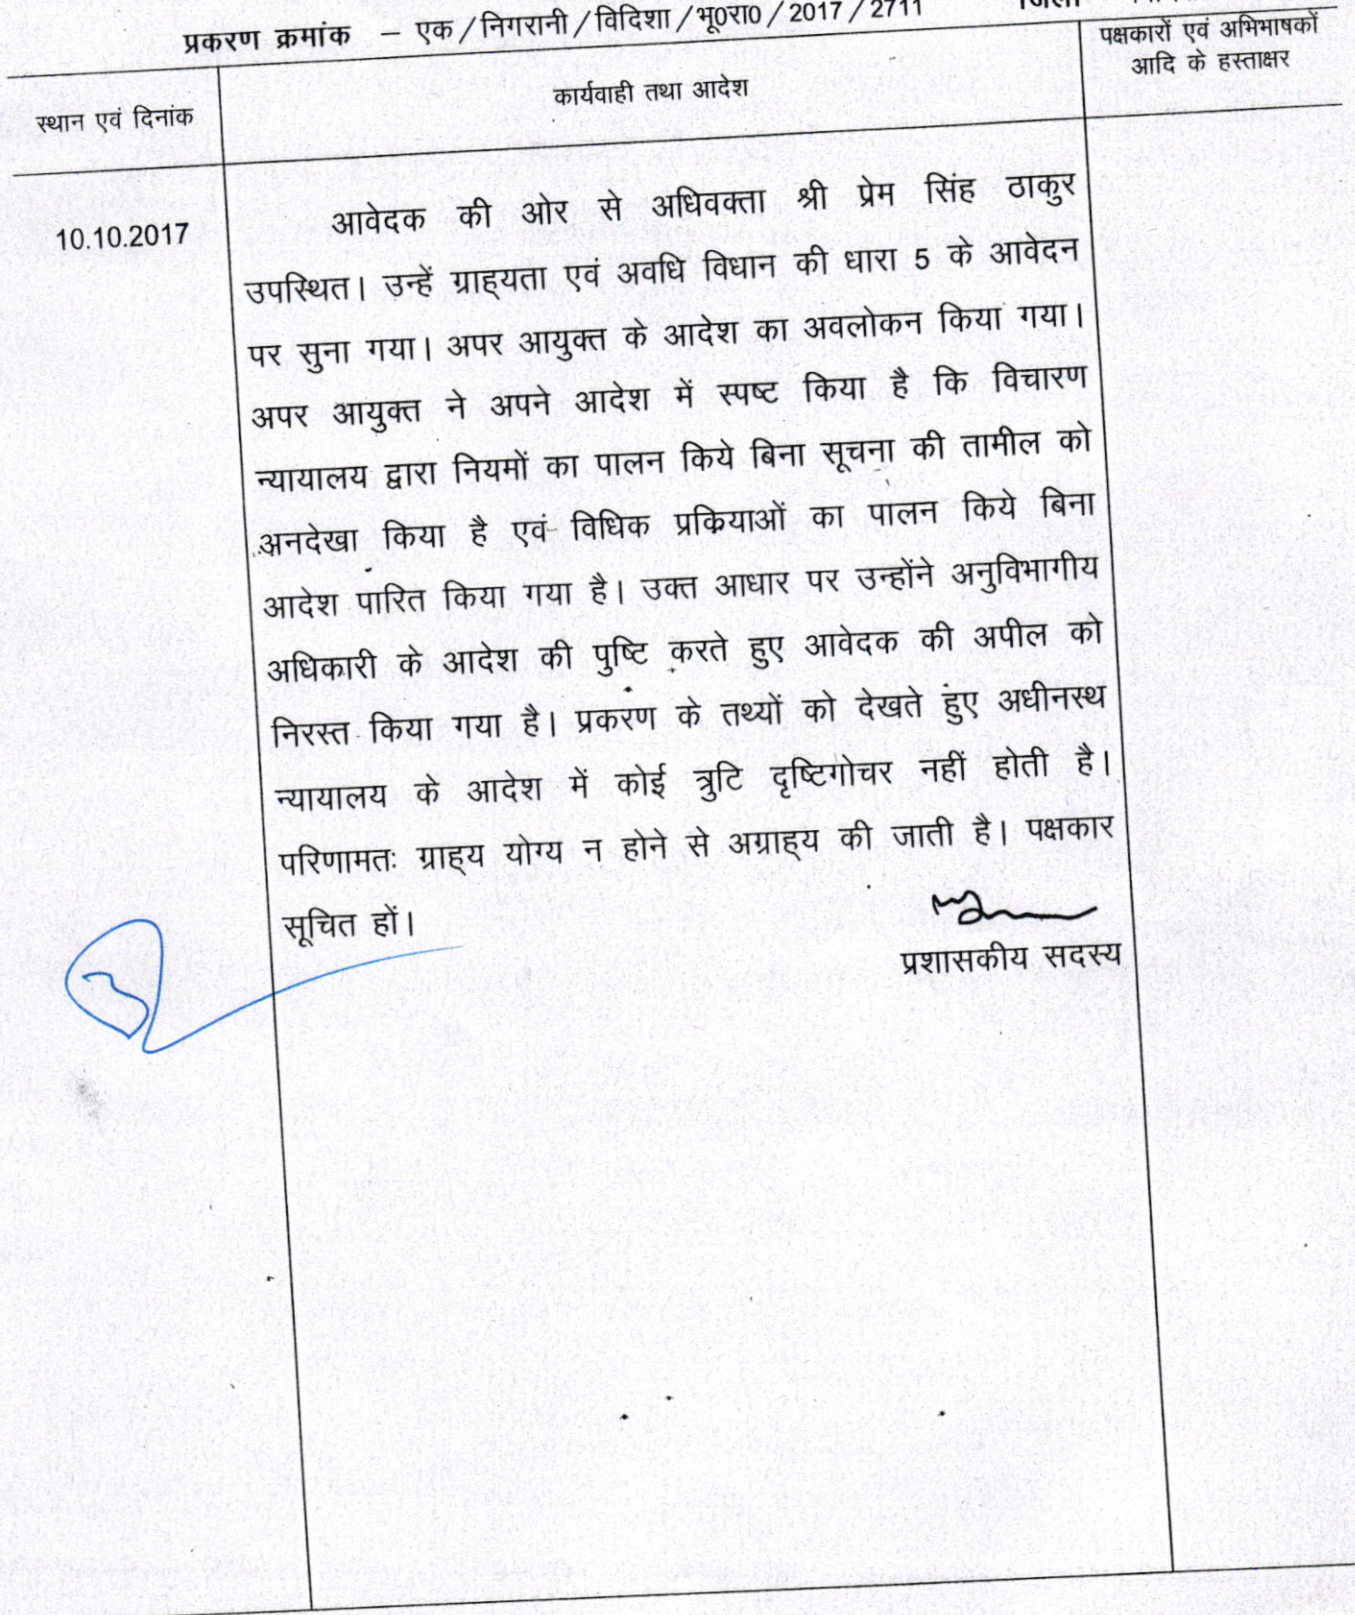 प्रकरण क्रमांक – एक/निगरानी/विदिशा/भू0रा0/2017/2711
स्थान एवं दिनांक
कार्यवाही तथा आदेश
पक्षकारों एवं अभिभाषकों
आदि के हस्ताक्षर
10.10.2017
आवेदक की ओर से अधिवक्ता श्री प्रेम सिंह ठाकुर
उपस्थित। उन्हें ग्राह्यता एवं अवधि विधान की धारा 5 के आवेदन
पर सुना गया। अपर आयुक्त के आदेश का अवलोकन किया गया।
अपर आयुक्त ने अपने आदेश में स्पष्ट किया है कि विचारण
न्यायालय द्वारा नियमों का पालन किये बिना सूचना की तामील को
अनदेखा किया है एवं विधिक प्रकियाओं का पालन किये बिना
आदेश पारित किया गया है। उक्त आधार पर उन्होंने अनुविभागीय
अधिकारी के आदेश की पुष्टि करते हुए आवेदक की अपील को
निरस्त किया गया है। प्रकरण के तथ्यों को देखते हुए अधीनस्थ
न्यायालय के आदेश में कोई त्रुटि दृष्टिगोचर नहीं होती है।
परिणामतः ग्राह्य योग्य न होने से अग्राह्य की जाती है। पक्षकार
सूचित हों।
प्रशासकीय सदस्य